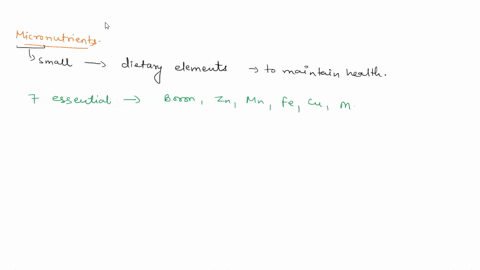 Micronutrients.
↳ small → dietary elements → to maintain health.
7 essential → Boron, Zn, Mn, Fe, Cu, M